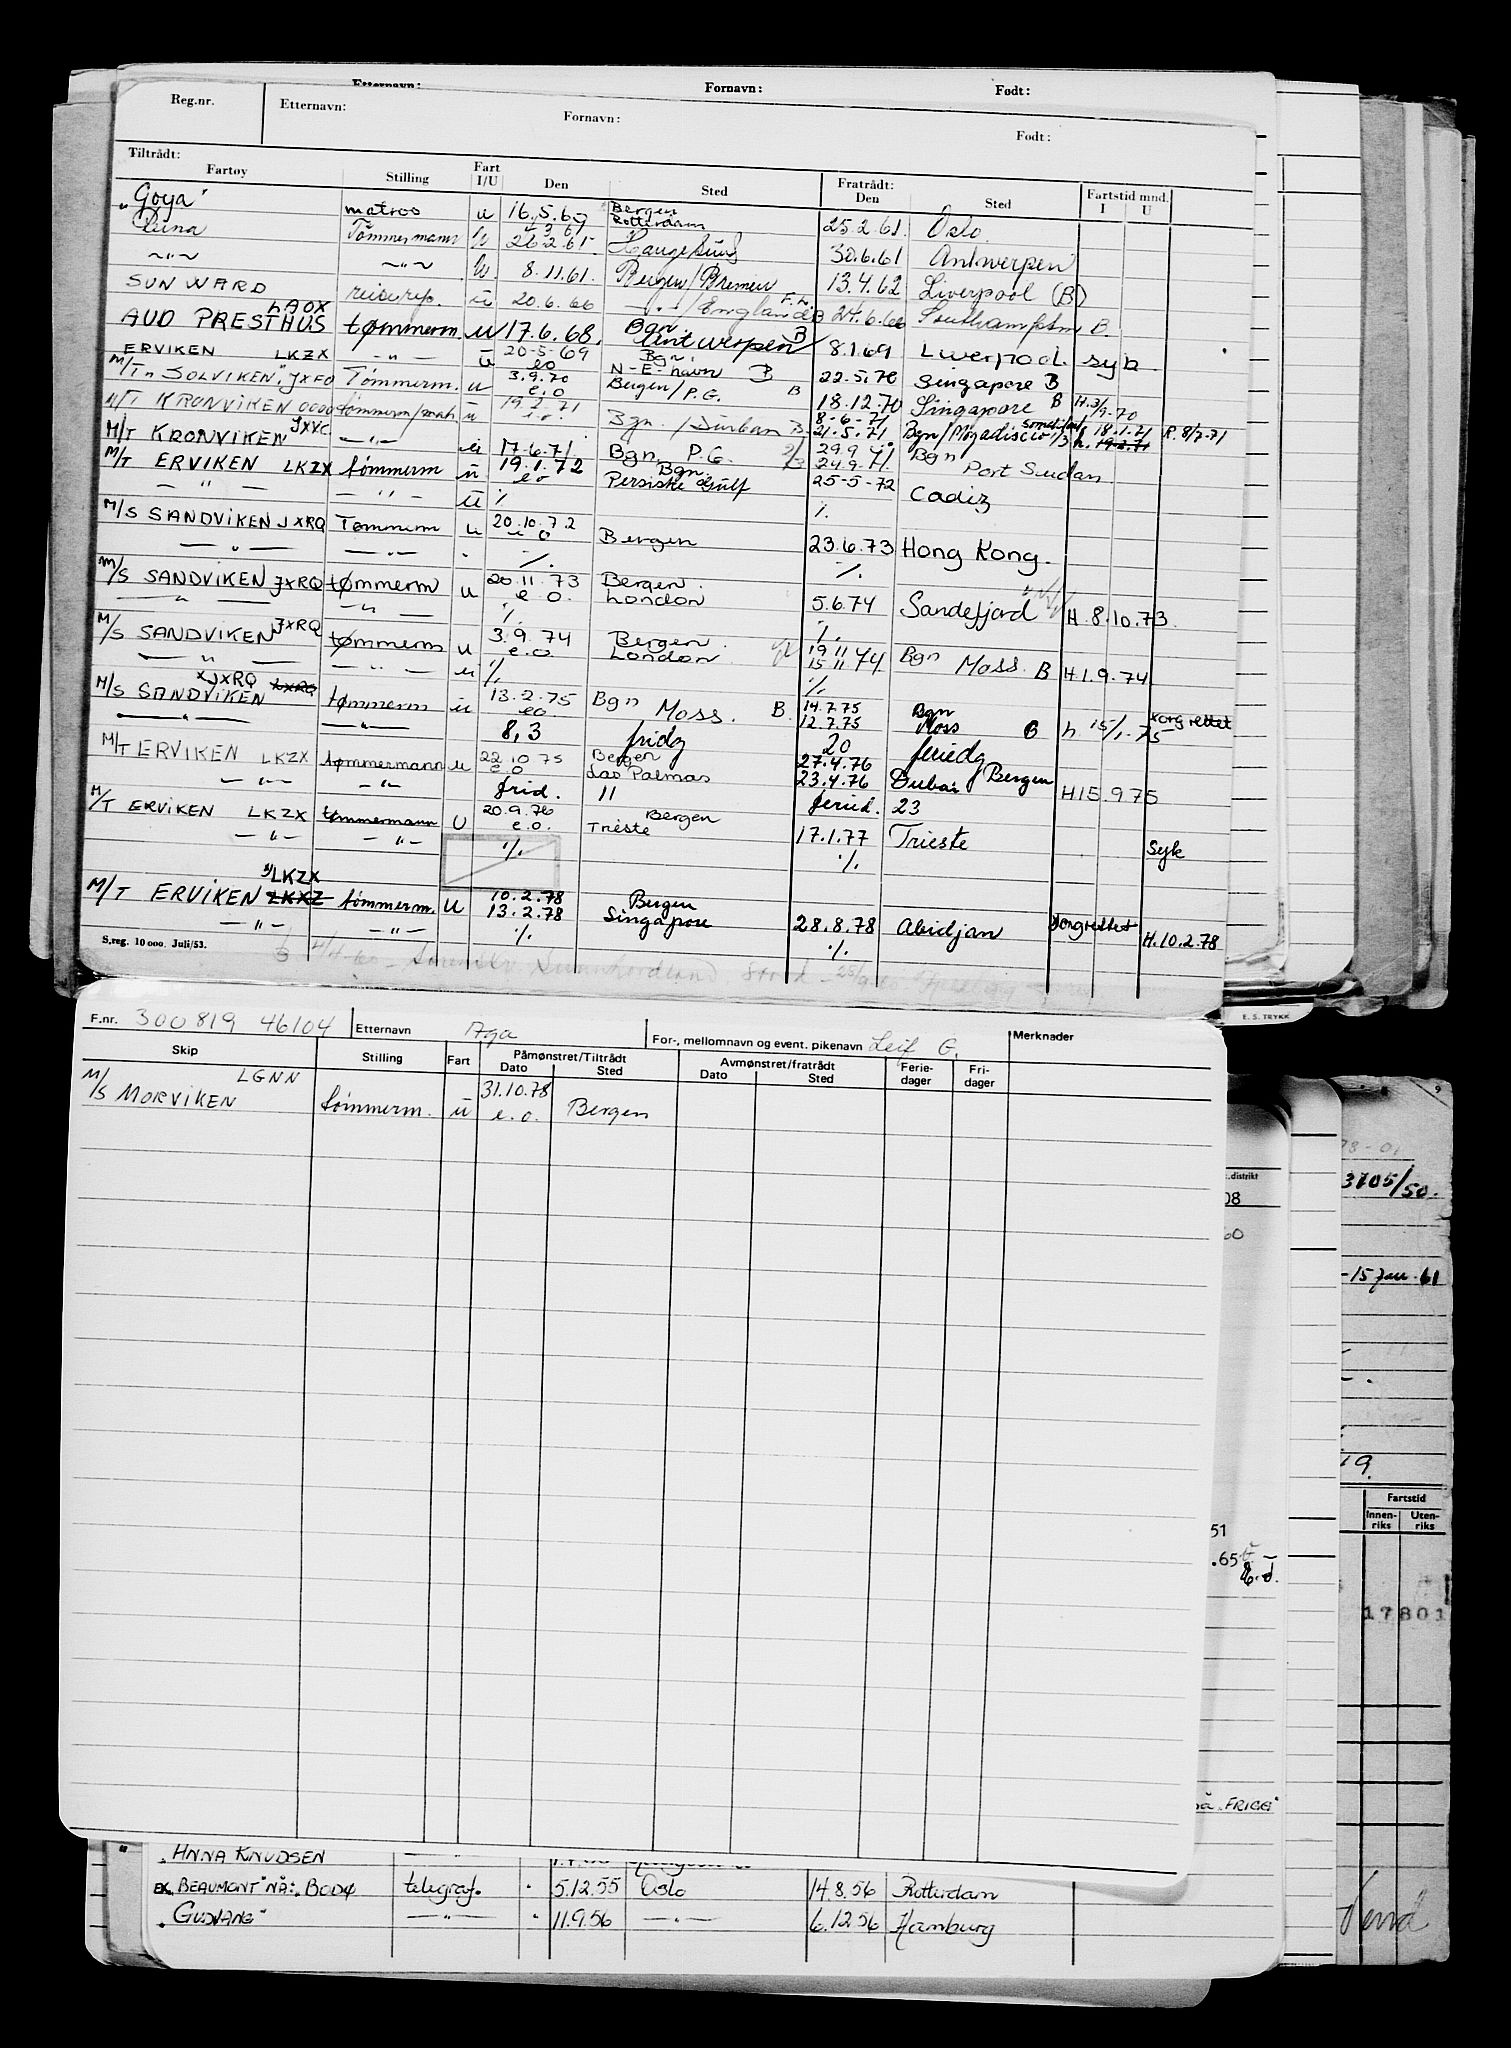 Etternavn: Fornavn: Født:
Reg.nr. Etternavn: Fornavn: Født:
Tiltrådt: Fratrådt: Fartstid mnd.
Fartøy Stilling Fart I/U Den Sted Den Sted I U
"Goya" matros u 16.5.60 Bergen Rotterdam 25.2.61 Oslo.
Tømmermann 26.2.61 Haugesund 30.6.61 Antwerpen
~"~ ~"~ 8.11.61. Bergen/Bremen 13.4.62 Liverpool (B)
SUN WARD reiserep. u 20.6.66 /England B 24.6.66 Southampton B.
LAOX
AUD PRESTHUS tømmerm. u 17.6.68. Bgn. Antwerpen B 8.1.69 Liverpool syk
ERVIKEN LKZX - " - u 20-5-69 eo Bgn N-E-havn B 22.5.70 Singapore B
M/T "SOLVIKEN" JXFO Tömmerm. u 3.9.70 e.o Bergen/P.G. B 18.12.70 Singapore B H.3/9.70
M/T KRONVIKEN tømmerm/ u e.o. Bgn./Durban B. 8-6-71 21.5.71 Bgn/Mogadiscio 18.1.71 R. 8/7-71
JXVC
M/T KRONVIKEN - " - u 17.6.71. Bgn. P.G. 29.9.71 24.9.71. Bgn Port Sudan
M/T ERVIKEN LKZX tömmerm u 19.1.72 eo Bgn. Persiske Gulf 25-5-72 Cadiz
- " - - " - u % %
M/S SANDVIKEN JXRQ Tømmerm u 20.10.72 e o Bergen 23.6.73 Hong Kong.
- " - - " - % %
M/S SANDVIKEN JXRQ tømmerm u 20.11.73 e o. Bergen. London 5.6.74 Sandefjord H.8.10.73.
- " - - " - % %
M/S SANDVIKEN JXRQ tømmerm u 3.9.74 e.o. Bergen. London 19 11 15 11 74 Bgn Moss. B H.1.9.74
- " - - " - u % %
M/S SANDVIKEN JXRQ tømmerm u 13.2.75 eo. Bgn Moss. B. 14.7.75 12.7.75 Bgn Moss B h. 15/1.75
- " - - " - 8,3 fridg 20 feriedg
M/T ERVIKEN LKZX tømmermann u 22.10.75 e.o Bergen Las Palmas 27.4.76 23.4.76 Dubai Bergen H15.975
- " - - " - frid. 11 feried. 23
M/T ERVIKEN LKZX tømmermann U 20.9.76 e.o. Bergen Trieste 17.1.77 Trieste Syk
- " - - " - % %
LKZX
M/T ERVIKEN ZKXZ tömmerm. U 10.2.78 13.2.78 Bergen Singapore 28.8.78 Abidjan H.10.2.78
- " - - " - % %
S.reg. 10 000. Juli/53.
Sunnhordland
E. S. TRYKK
F.nr. 300819 46104 Etternavn Aga For-, mellomnavn og event. pikenavn Leif G. Merknader
Skip Stilling Fart Påmønstret/Tiltrådt Avmønstret/fratrådt Ferie-dager Fri-dager
Dato Sted Dato Sted
M/S MORVIKEN LGNN tömmerm. u 31.10.78 e.o. Bergen
3705/50.
distrikt
08
60
-15 Jan. 61
19.
Fartstid
Innen-riks Uten-riks
51
.65
17801
"FRIGG"
"ANNA KNUDSEN - " -
EX. "BEAUMONT" NÅ: "BODØ telegraf. " 5.12.55 Oslo 14.8.56 Rotterdam
"GUDVANG" - " - " 11.9.56 - " - 6.12.56 Hamburg